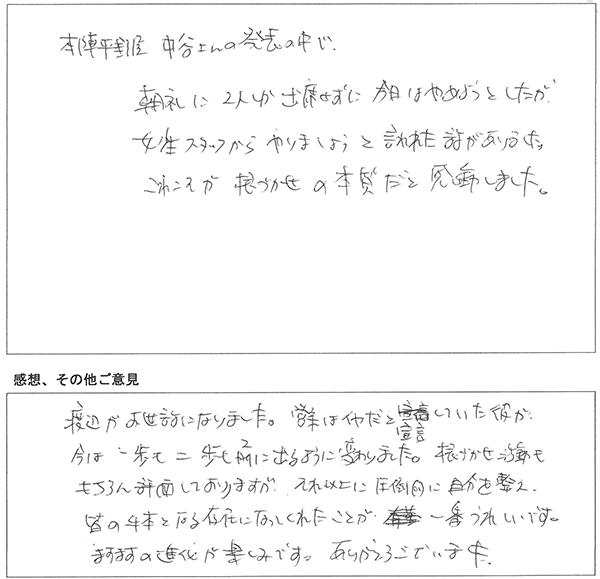 本陣平野屋 中谷さんの発表の中で、
朝礼に2人しか出席せずに今日はやめようとしたが、
女性スタッフからやりましょうと言われた話がありました。
これこそが根づかせの本質だと感動しました。
感想、その他ご意見
渡辺がお世話になりました。営業はイヤだと宣言していた彼が、
今は一歩も二歩も前に出るように変わりました。根づかせ活動も
もちろん評価しておりますが、それ以上に圧倒的に自分を整え、
皆の手本となる存在になってくれたことが一番うれしいです。
ますますの進化が楽しみです。ありがとうございました。